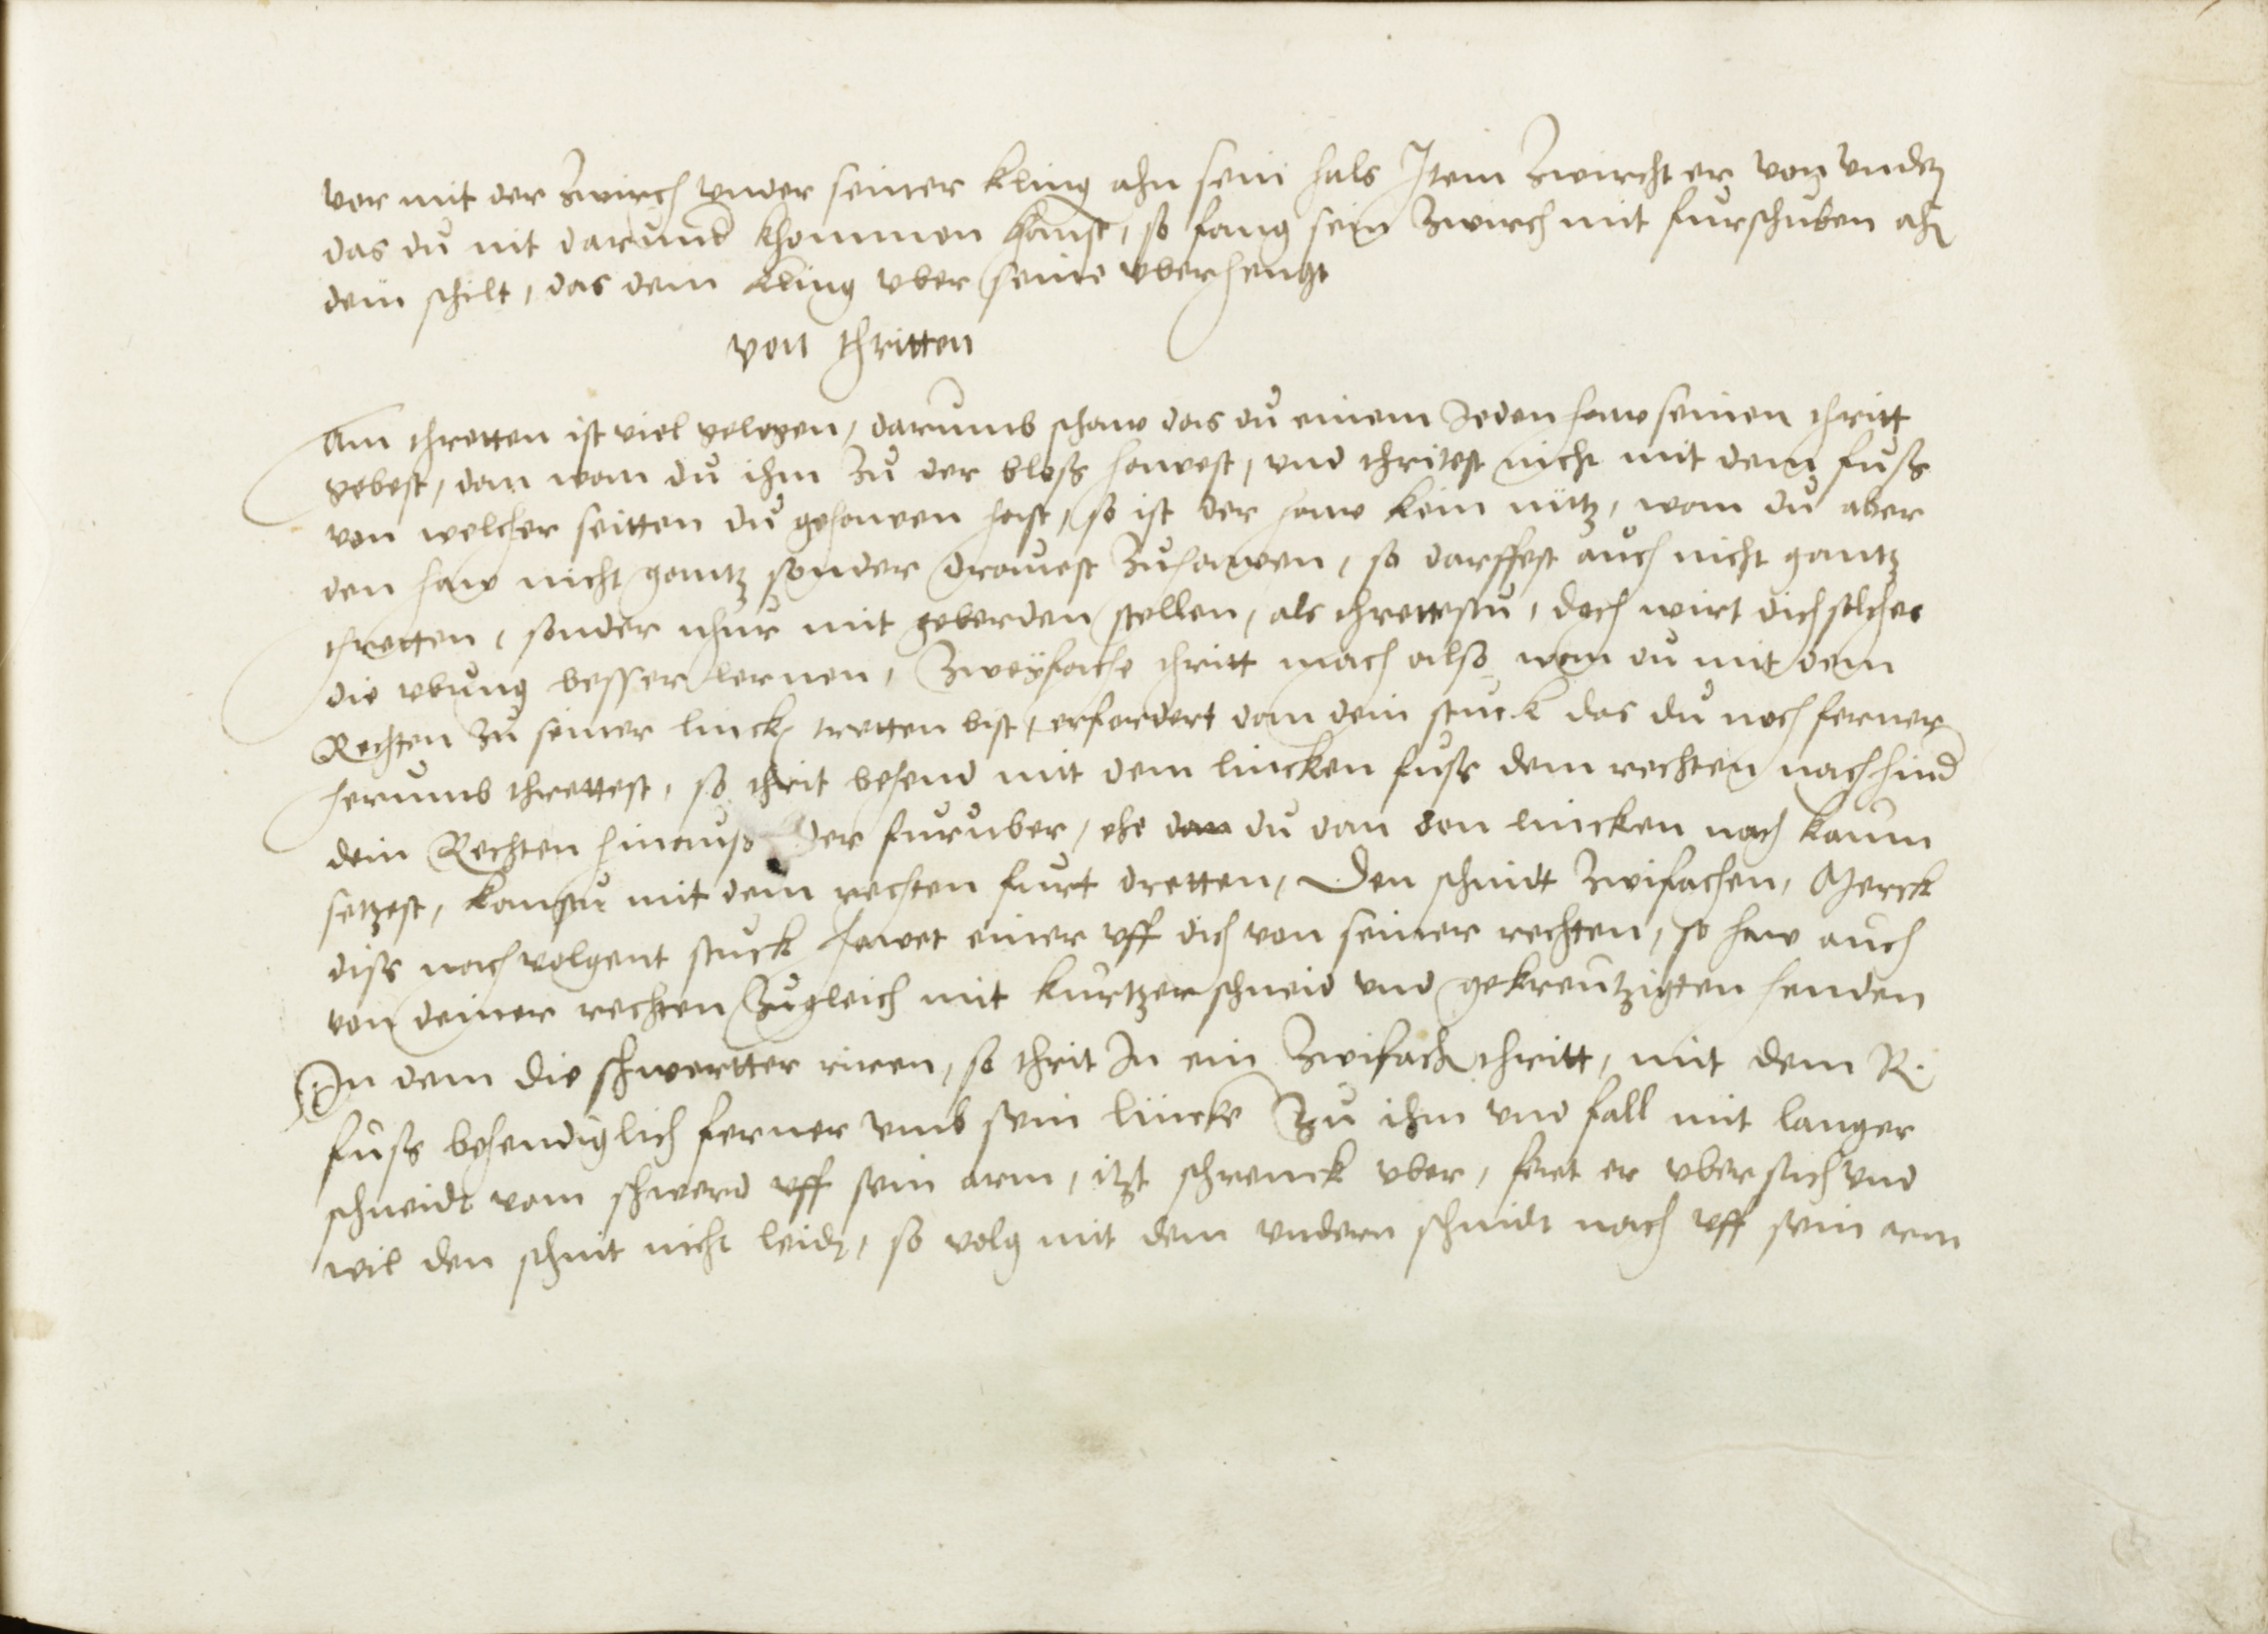 vor mit der zwirch vnder seiner kling ahn sein hals Item zwircht er von vnden
das du nit darund khommen kanst, so fang sein zwirch mit furschuben ahn
dein schilt, das dein kling vber seine vberhengt
von thritten
Am thretten ist viel gelegen, darumb schaw das du einem Jeden haw seinen thritt
gebest, dan wan du ihm zu der bloss hawest, vnd thritest nicht mit dem fuss
von welcher seitten du gehawen hast, so ist der haw kein nutz, wan du aber
den haw nicht gantz sonder drawest zuhawen, so darffest auch nicht gantz
thretten, sonder nhur mit geberden stellen, als threttestu, doch wirt dich solches
die vbung besser lernen, Zweyfache thritt mach also wan du mit dem
Rechten zu seiner linck tretten bist, erfordert dan dein stuck das du noch ferner
herumb threttest, so thrit behend mit dem lincken fuss dem rechten nach hind
dein Rechten hinauss der furuber, ehe dan du dan den lincken nach kaum
setzest, kanstu mit dem rechten furt dretten, Den schnidt zwifachen, Merck
diss nachvolgent stuck hawet einer vff dich von seiner rechten, so haw auch
von deiner rechten zugleich mit kurtzer schneid vnd gekreutzigten henden
In dem die schwertter riren, so thrit In ein zwifach thritt, mit dem R.
fuss behendiglich ferner vmb sein lincke zu ihm vnd fall mit langer
schneidt vom schwerd vff sein arm, itzt schrenck vber, fert er vbersich vnd
wil den schnit nicht leidn, so volg mit dem vndern schnidt nach vff sein arm